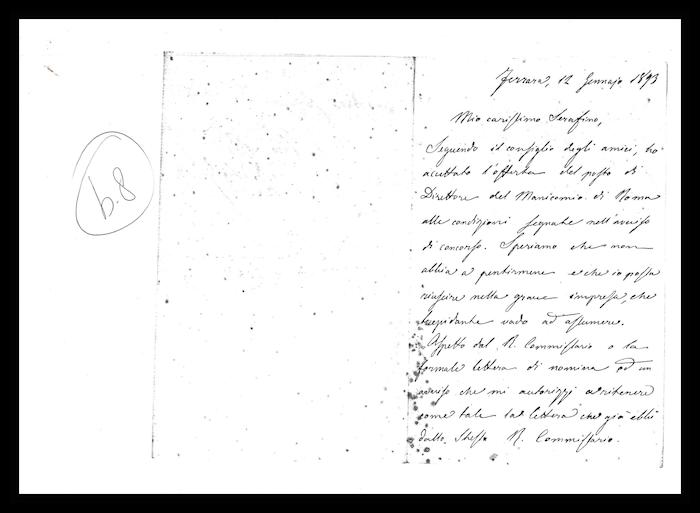 b.8
Ferrara, 12 Gennajo 1893
Mio carissimo Serafino,
Seguendo il consiglio degli amici, ho
accettato l'offerta del posto di
Direttore del Manicomio di Roma
alle condizioni segnate nell'avviso
di concorso. Speriamo che non
abbia a pentirmene e che io possa
riuscire nella grave impresa, che
trepidante vado ad assumere.
Aspetto dal R. Commissario o la
formale lettera di nomina od un
avviso che mi autorizzi a ritenere
come tale la lettera che già ebbi
dallo stesso R. Commissario.